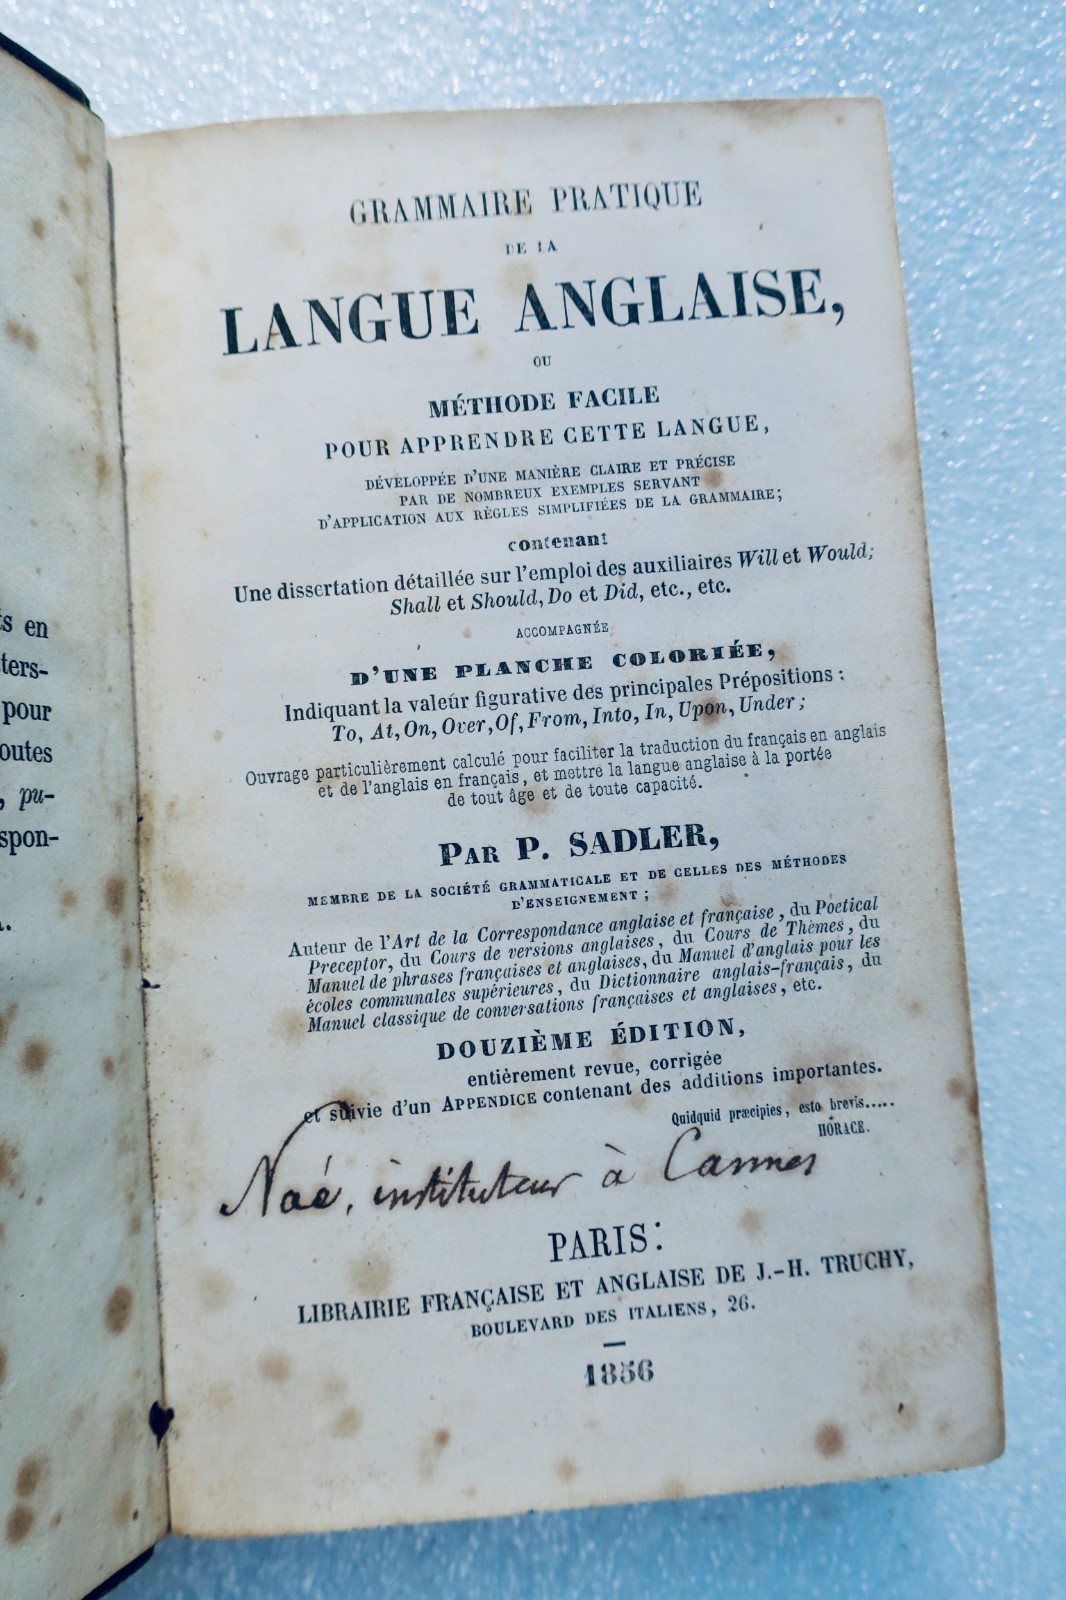 s en
ters-
pour
outes
, pu-
spon-
GRAMMAIRE PRATIQUE
DE LA
LANGUE ANGLAISE,
OU
MÉTHODE FACILE
POUR APPRENDRE CETTE LANGUE,
DÉVELOPPÉE D'UNE MANIÈRE CLAIRE ET PRÉCISE
PAR DE NOMBREUX EXEMPLES SERVANT
D'APPLICATION AUX RÈGLES SIMPLIFIÉES DE LA GRAMMAIRE;
contenant
Une dissertation détaillée sur l'emploi des auxiliaires Will et Would;
Shall et Should, Do et Did, etc., etc.
ACCOMPAGNÉE
D'UNE PLANCHE COLORIÉE,
Indiquant la valeur figurative des principales Prépositions :
To, At, On, Over, Of, From, Into, In, Upon, Under;
Ouvrage particulièrement calculé pour faciliter la traduction du français en anglais
et de l'anglais en français, et mettre la langue anglaise à la portée
de tout âge et de toute capacité.
PAR P. SADLER,
MEMBRE DE LA SOCIÉTÉ GRAMMATICALE ET DE CELLES DES MÉTHODES
D'ENSEIGNEMENT ;
Auteur de l'Art de la Correspondance anglaise et française, du Poetical
Preceptor, du Cours de versions anglaises, du Cours de Thèmes, du
Manuel de phrases françaises et anglaises, du Manuel d'anglais pour les
écoles communales supérieures, du Dictionnaire anglais-français, du
Manuel classique de conversations françaises et anglaises, etc.
DOUZIÈME ÉDITION,
entièrement revue, corrigée
et suivie d'un APPENDICE contenant des additions importantes.
Quidquid præcipies, esto brevis.....
HORACE.
Naé, instituteur à Cannes
PARIS:
LIBRAIRIE FRANÇAISE ET ANGLAISE DE J.-H. TRUCHY,
BOULEVARD DES ITALIENS, 26.
1856